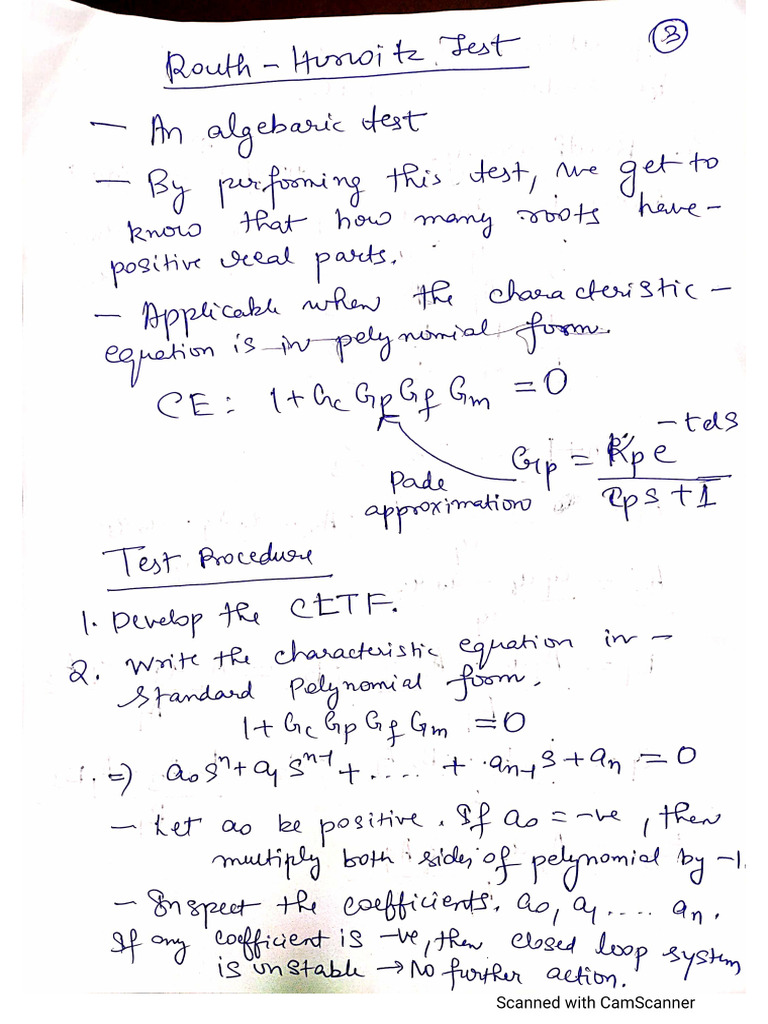 3
Routh - Hurwitz Test
- An algebaric test
- By performing this test, we get to
know that how many roots have -
positive real parts.
- Applicable when the characteristic -
equation is in polynomial form.
CE: 1 + Gc Gp Gf Gm = 0
Gp = Kp e^-tds / τps + 1
Pade
approximation
Test Procedure
1. Develop the CLTF.
2. Write the characteristic equation in -
standard Polynomial form.
1 + Gc Gp Gf Gm = 0
⇒) a₀sⁿ + a₁sⁿ⁻¹ + ..... + aₙ₋₁s + aₙ = 0
- Let a₀ be positive. If a₀ = -ve, then
multiply both sides of polynomial by -1.
- Inspect the coefficients, a₀, a₁.... aₙ.
If any coefficient is -ve, then closed loop system
is unstable → No further action.
Scanned with CamScanner